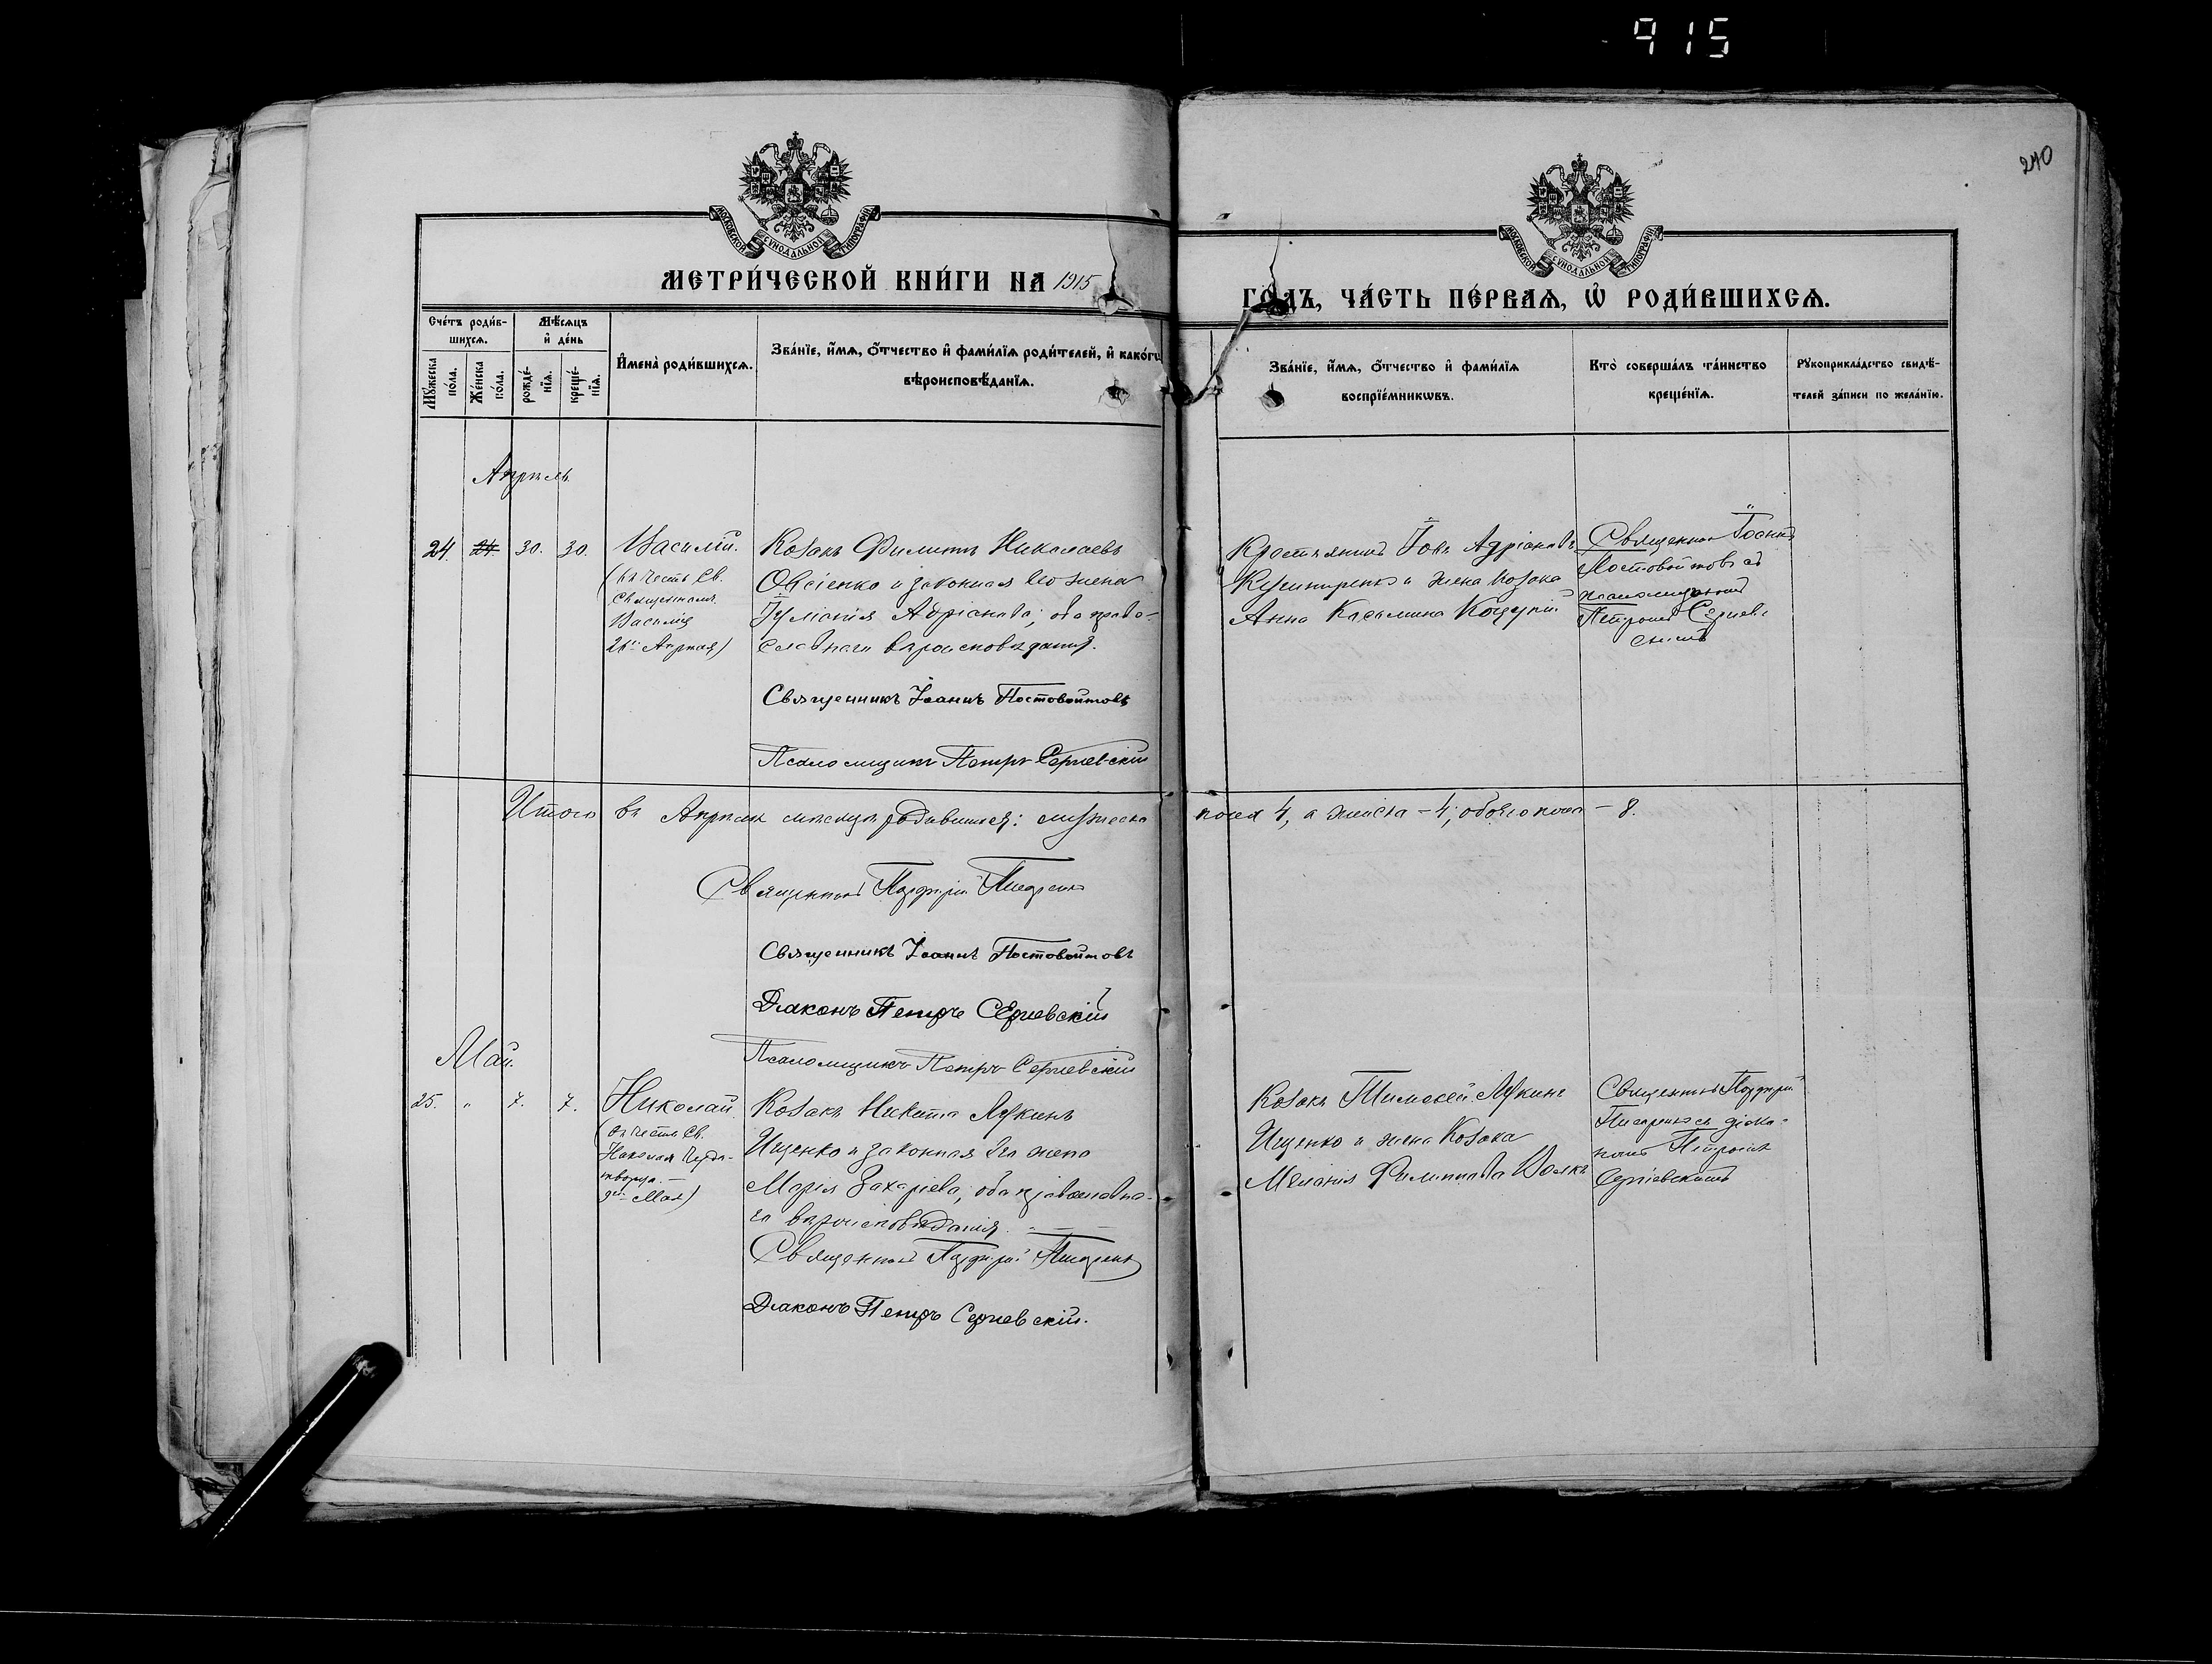 915
240
МОСКОВСКОЙ СѴНОДАЛЬНОЙ ТИПОГРАФІИ
МОСКОВСКОЙ СѴНОДАЛЬНОЙ ТИПОГРАФІИ
МЕТРИ́ЧЕСКОЙ КНИ́ГИ НА 1915
ГОДЪ, ЧА́СТЬ ПЕ́РВАѦ, Ѽ РОДИ́ВШИХСѦ.
Сче́тъ роди́в-
шихсѧ.
Мꙋжеска по́ла.
Же́нска по́ла.
Мѣ́сѧцъ
и҆ де́нь
рожде́-
нїѧ.
креще́-
нїѧ.
И҆мена̀ роди́вшихсѧ.
Зва́нїе, и҆́мѧ, ѻ҆́тчество и҆ фами́лїѧ роди́телей, и҆ како́гѡ
вѣроисповѣ́данїѧ.
Зва́нїе, и҆́мѧ, ѻ҆́тчество и҆ фами́лїѧ
воспрїе́мникѡвъ.
Кто̀ соверша́лъ та́инство
креще́нїѧ.
Рꙋкоприкла́дство свидѣ́-
телей за́писи по жела́нїю.
Апрель
24. 24. 30. 30.
Василій.
(въ честь Св.
Священном.
Василія
26го Апреля)
Козакъ Филиппъ Николаевъ
Овсіенко и законная его жена
Іуліанія Адріанова; оба право-
славнаго вѣроисповѣданія.
Священникъ Іоаннъ Постовойтовъ
Псаломщикъ Петръ Сергіевскій
Крестьянинъ Іовъ Адріановъ
Кушниренко и жена козака
Анна Касьянина Коцупій
Священник Іоаннъ
Постовойтовъ съ
псаломщикомъ
Петромъ Сергіев-
скимъ
Итого въ Апрелѣ месяцѣ родившихся: мужеска
пола 4, а женска – 4; обоего пола – 8.
Священникъ Порфирій Писаренко
Священникъ Іоаннъ Постовойтовъ
Діаконъ Петръ Сергіевскій
Псаломщикъ Петръ Сергіевскій
Май.
25. " 7. 7.
Николай.
(въ честь Св.
Николая Чудо-
творца. –
9го Мая)
Козакъ Никита Лукинъ
Ищенко и законная его жена
Марія Захаріева, оба православна-
го вѣроисповѣданія.
Священникъ Порфирій Писаренко
Діаконъ Петръ Сергіевскій.
Козакъ Тимофей Лукинъ
Ищенко и жена Козака
Меланія Филиппова Волкъ
Священникъ Порфирій
Писаренко съ діако-
номъ Петромъ
Сергіевскимъ